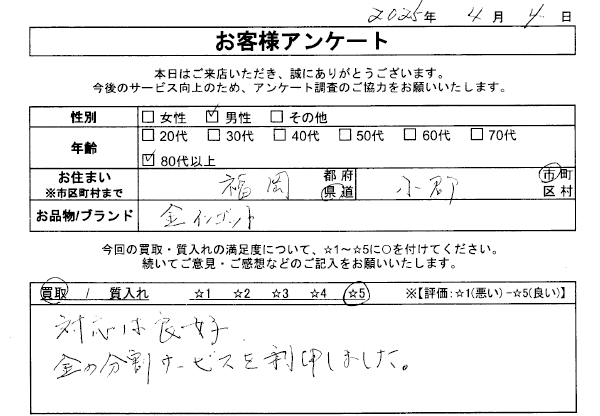 2025年 4月 4日
お客様アンケート
本日はご来店いただき、誠にありがとうございます。
今後のサービス向上のため、アンケート調査のご協力をお願いいたします。
性別 □女性 ☑男性 □その他
年齢 □20代 □30代 □40代 □50代 □60代 □70代
☑80代以上
お住まい ※市区町村まで 福岡 都府県道 小郡 市町区村
お品物/ブランド 金インゴット
今回の買取・質入れの満足度について、☆1～☆5に○を付けてください。
続いてご意見・ご感想などのご記入をお願いいたします。
買取 / 質入れ ☆1 ☆2 ☆3 ☆4 ☆5 ※【評価:☆1(悪い)-☆5(良い)】
対応は良好
金の分割サービスを利用しました。